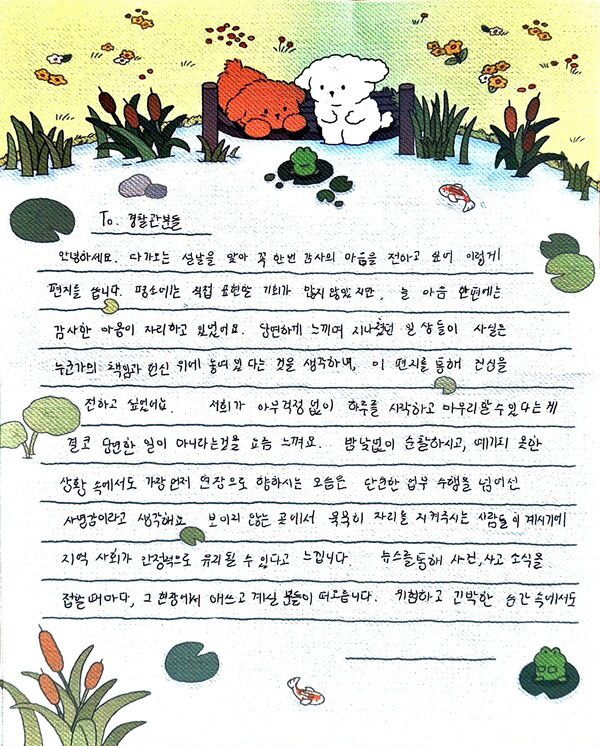 To. 경찰관분들
안녕하세요. 다가오는 설날을 맞아 꼭 한번 감사의 마음을 전하고 싶어 이렇게
편지를 씁니다. 평소에는 직접 표현할 기회가 많지 않았지만, 늘 마음 한편에는
감사한 마음이 자리하고 있었어요. 당연하게 느끼며 지나쳤던 일상들이 사실은
누군가의 책임과 헌신 위에 놓여있다는 것을 생각하며, 이 편지를 통해 진심을
전하고 싶었어요. 저희가 아무걱정 없이 하루를 시작하고 마무리할 수 있다는 게
결코 당연한 일이 아니라는것을 요즘 느껴요. 밤낮없이 순찰하시고, 예기치 못한
상황 속에서도 가장 먼저 현장으로 향하시는 모습은 단순한 업무 수행을 넘어선
사명감이라고 생각해요. 보이지 않는 곳에서 묵묵히 자리를 지켜주시는 사람들이 계시기에
지역 사회가 안정적으로 유지될 수 있다고 느낍니다. 뉴스를통해 사건,사고 소식을
접할 때마다, 그 현장에서 애쓰고 계실 분들이 떠오릅니다. 위험하고 긴박한 순간 속에서도